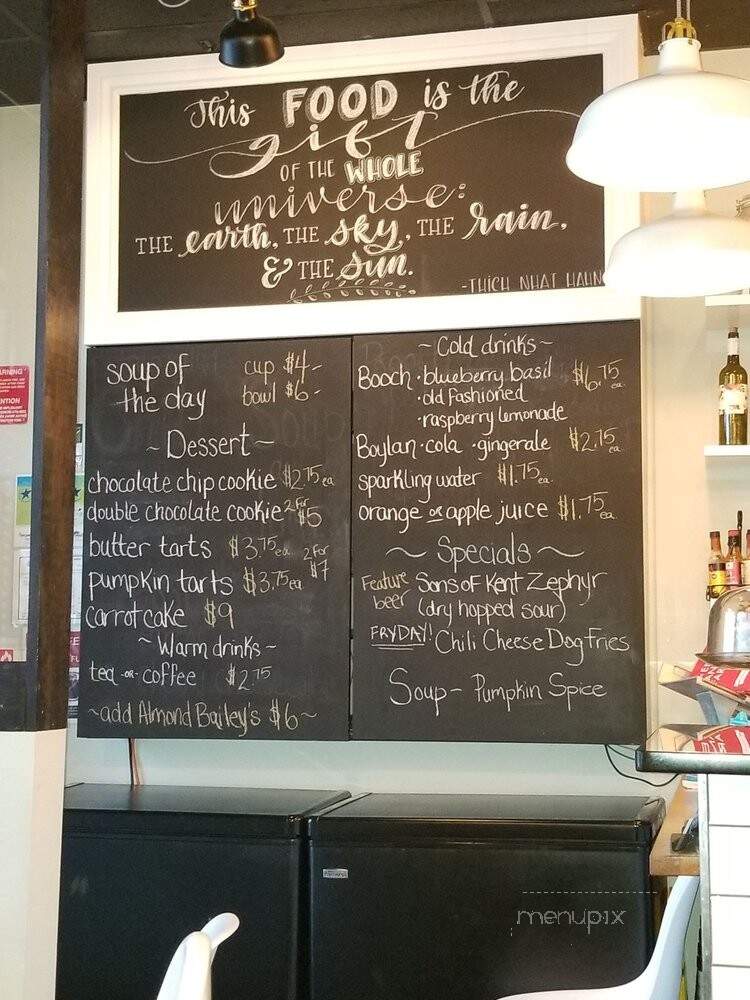 This FOOD is the
gift
OF THE WHOLE
universe:
THE earth, THE sky, THE rain,
& THE sun.
-THICH NHAT HAHN
soup of cup $4-
the day bowl $6-
~Dessert~
chocolate chip cookie $2.75 ea
double chocolate cookie 2 for $5
butter tarts $3.75 ea 2 for $7
pumpkin tarts $3.75 ea
carrot cake $9
~Warm drinks~
tea -OR- coffee $2.75
~add Almond Bailey's $6~
~Cold drinks~
Booch •blueberry basil $6.75 ea.
•old fashioned
•raspberry lemonade
Boylan •cola •gingerale $2.75 ea.
sparkling water $1.75 ea.
orange or apple juice $1.75 ea.
~Specials~
Feature beer Sons of Kent Zephyr
(dry hopped sour)
FRYDAY! Chili Cheese Dog Fries
Soup - Pumpkin Spice
menupix